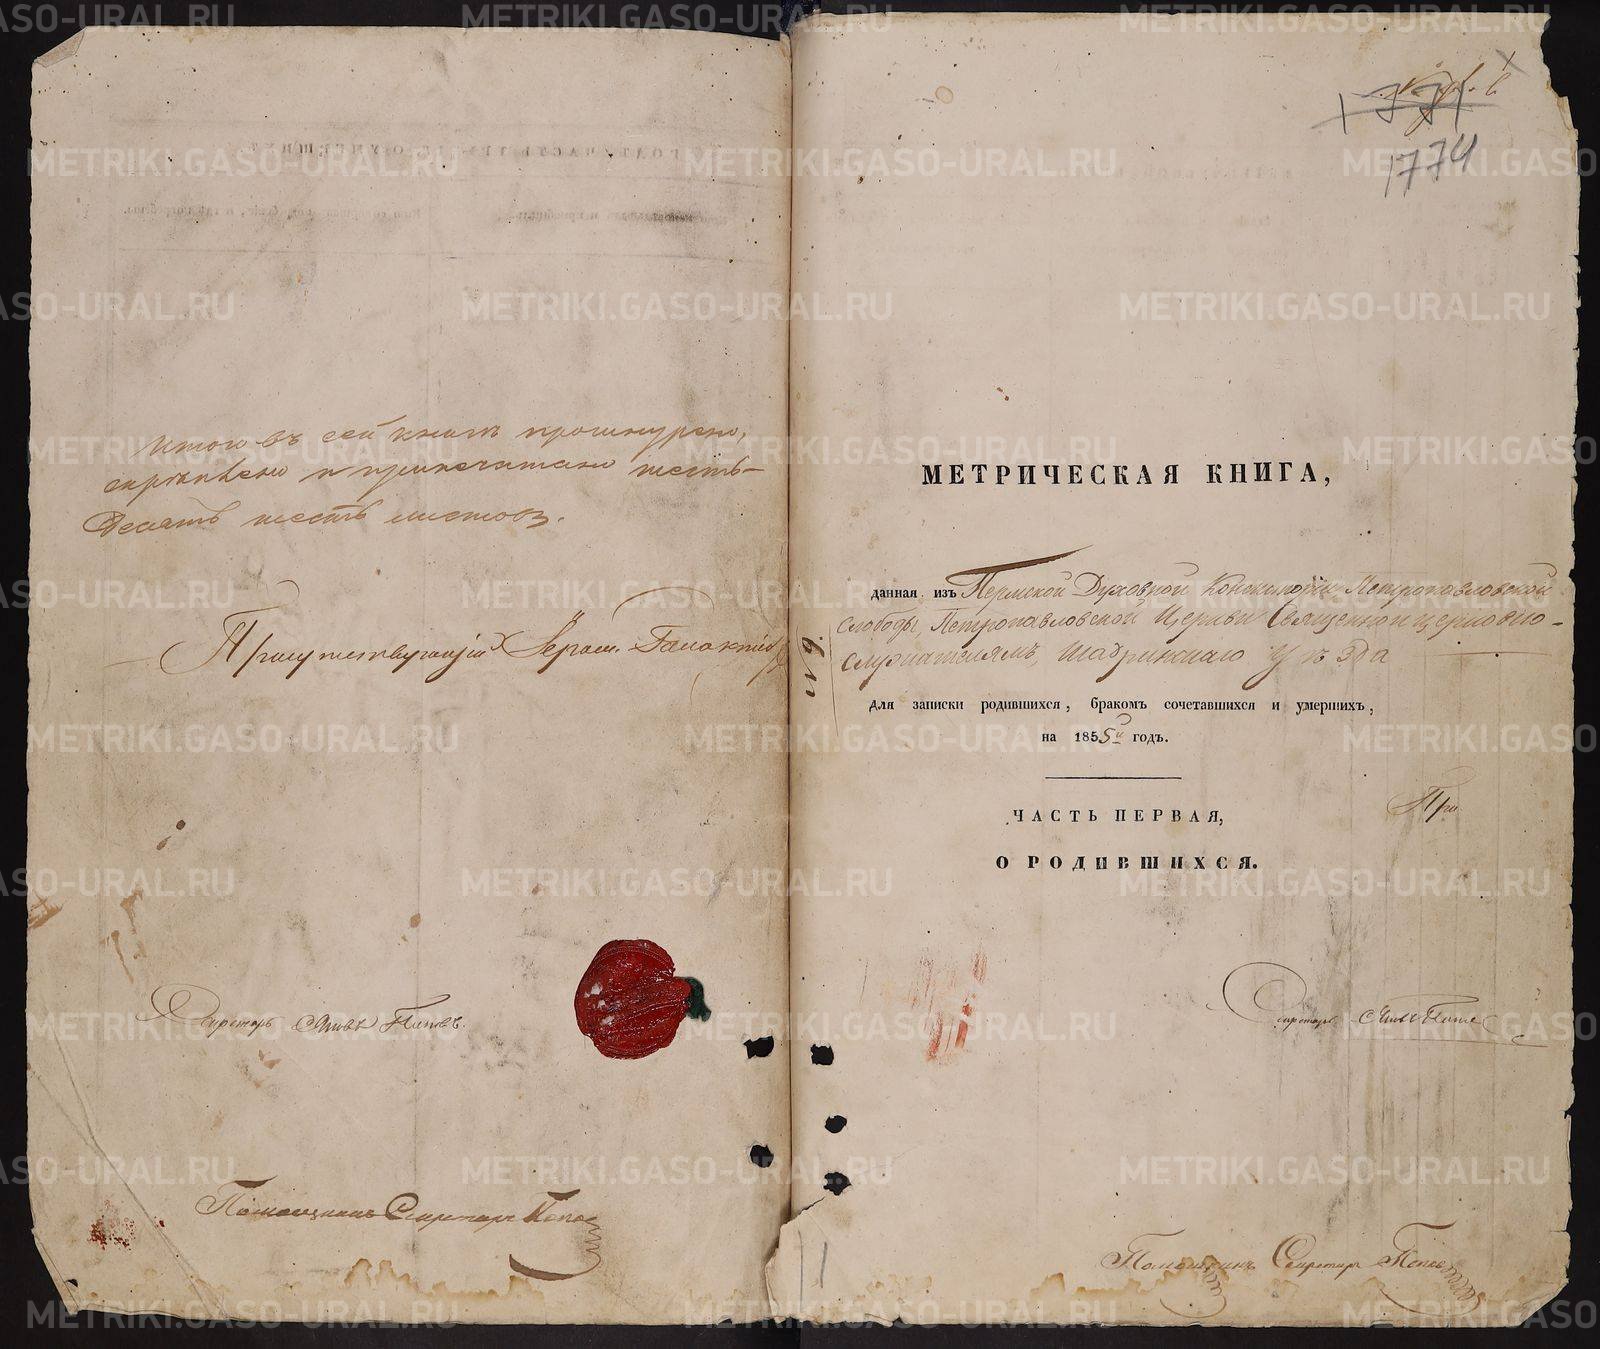 Итого въ сей книгѣ прошнурено,
скрѣплено и припечатано шесть-
десятъ шесть листовъ.
Присутствующій
Секретарь Поповъ.
Помощникъ Секретаря Попо
1774
МЕТРИЧЕСКАЯ КНИГА,
данная изъ Пермской Духовной Консисторіи Петропавловской
слободы, Петропавловской Церкви Священноцерковно-
служителямъ, Шадринскаго уѣзда
№ 9.
для записки родившихся, бракомъ сочетавшихся и умершихъ,
на 1855й годъ.
При
ЧАСТЬ ПЕРВАЯ,
О РОДИВШИХСЯ.
Секретарь
Помощникъ Секретаря Попов
METRIKI.GASO-URAL.RU